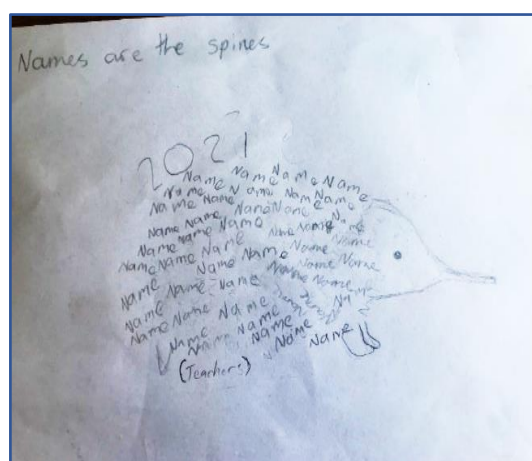 Names are the spines
2021
Name Name Name Name
Name Name Name Name
Name Name Name Name Name
Name Name Name Name Name Name
Name Name Name Name Name
Name Name Name Name Name
Name Name Name Name Name
Name Name Name
Name Name
Name Name
Name Name
(Teachers)